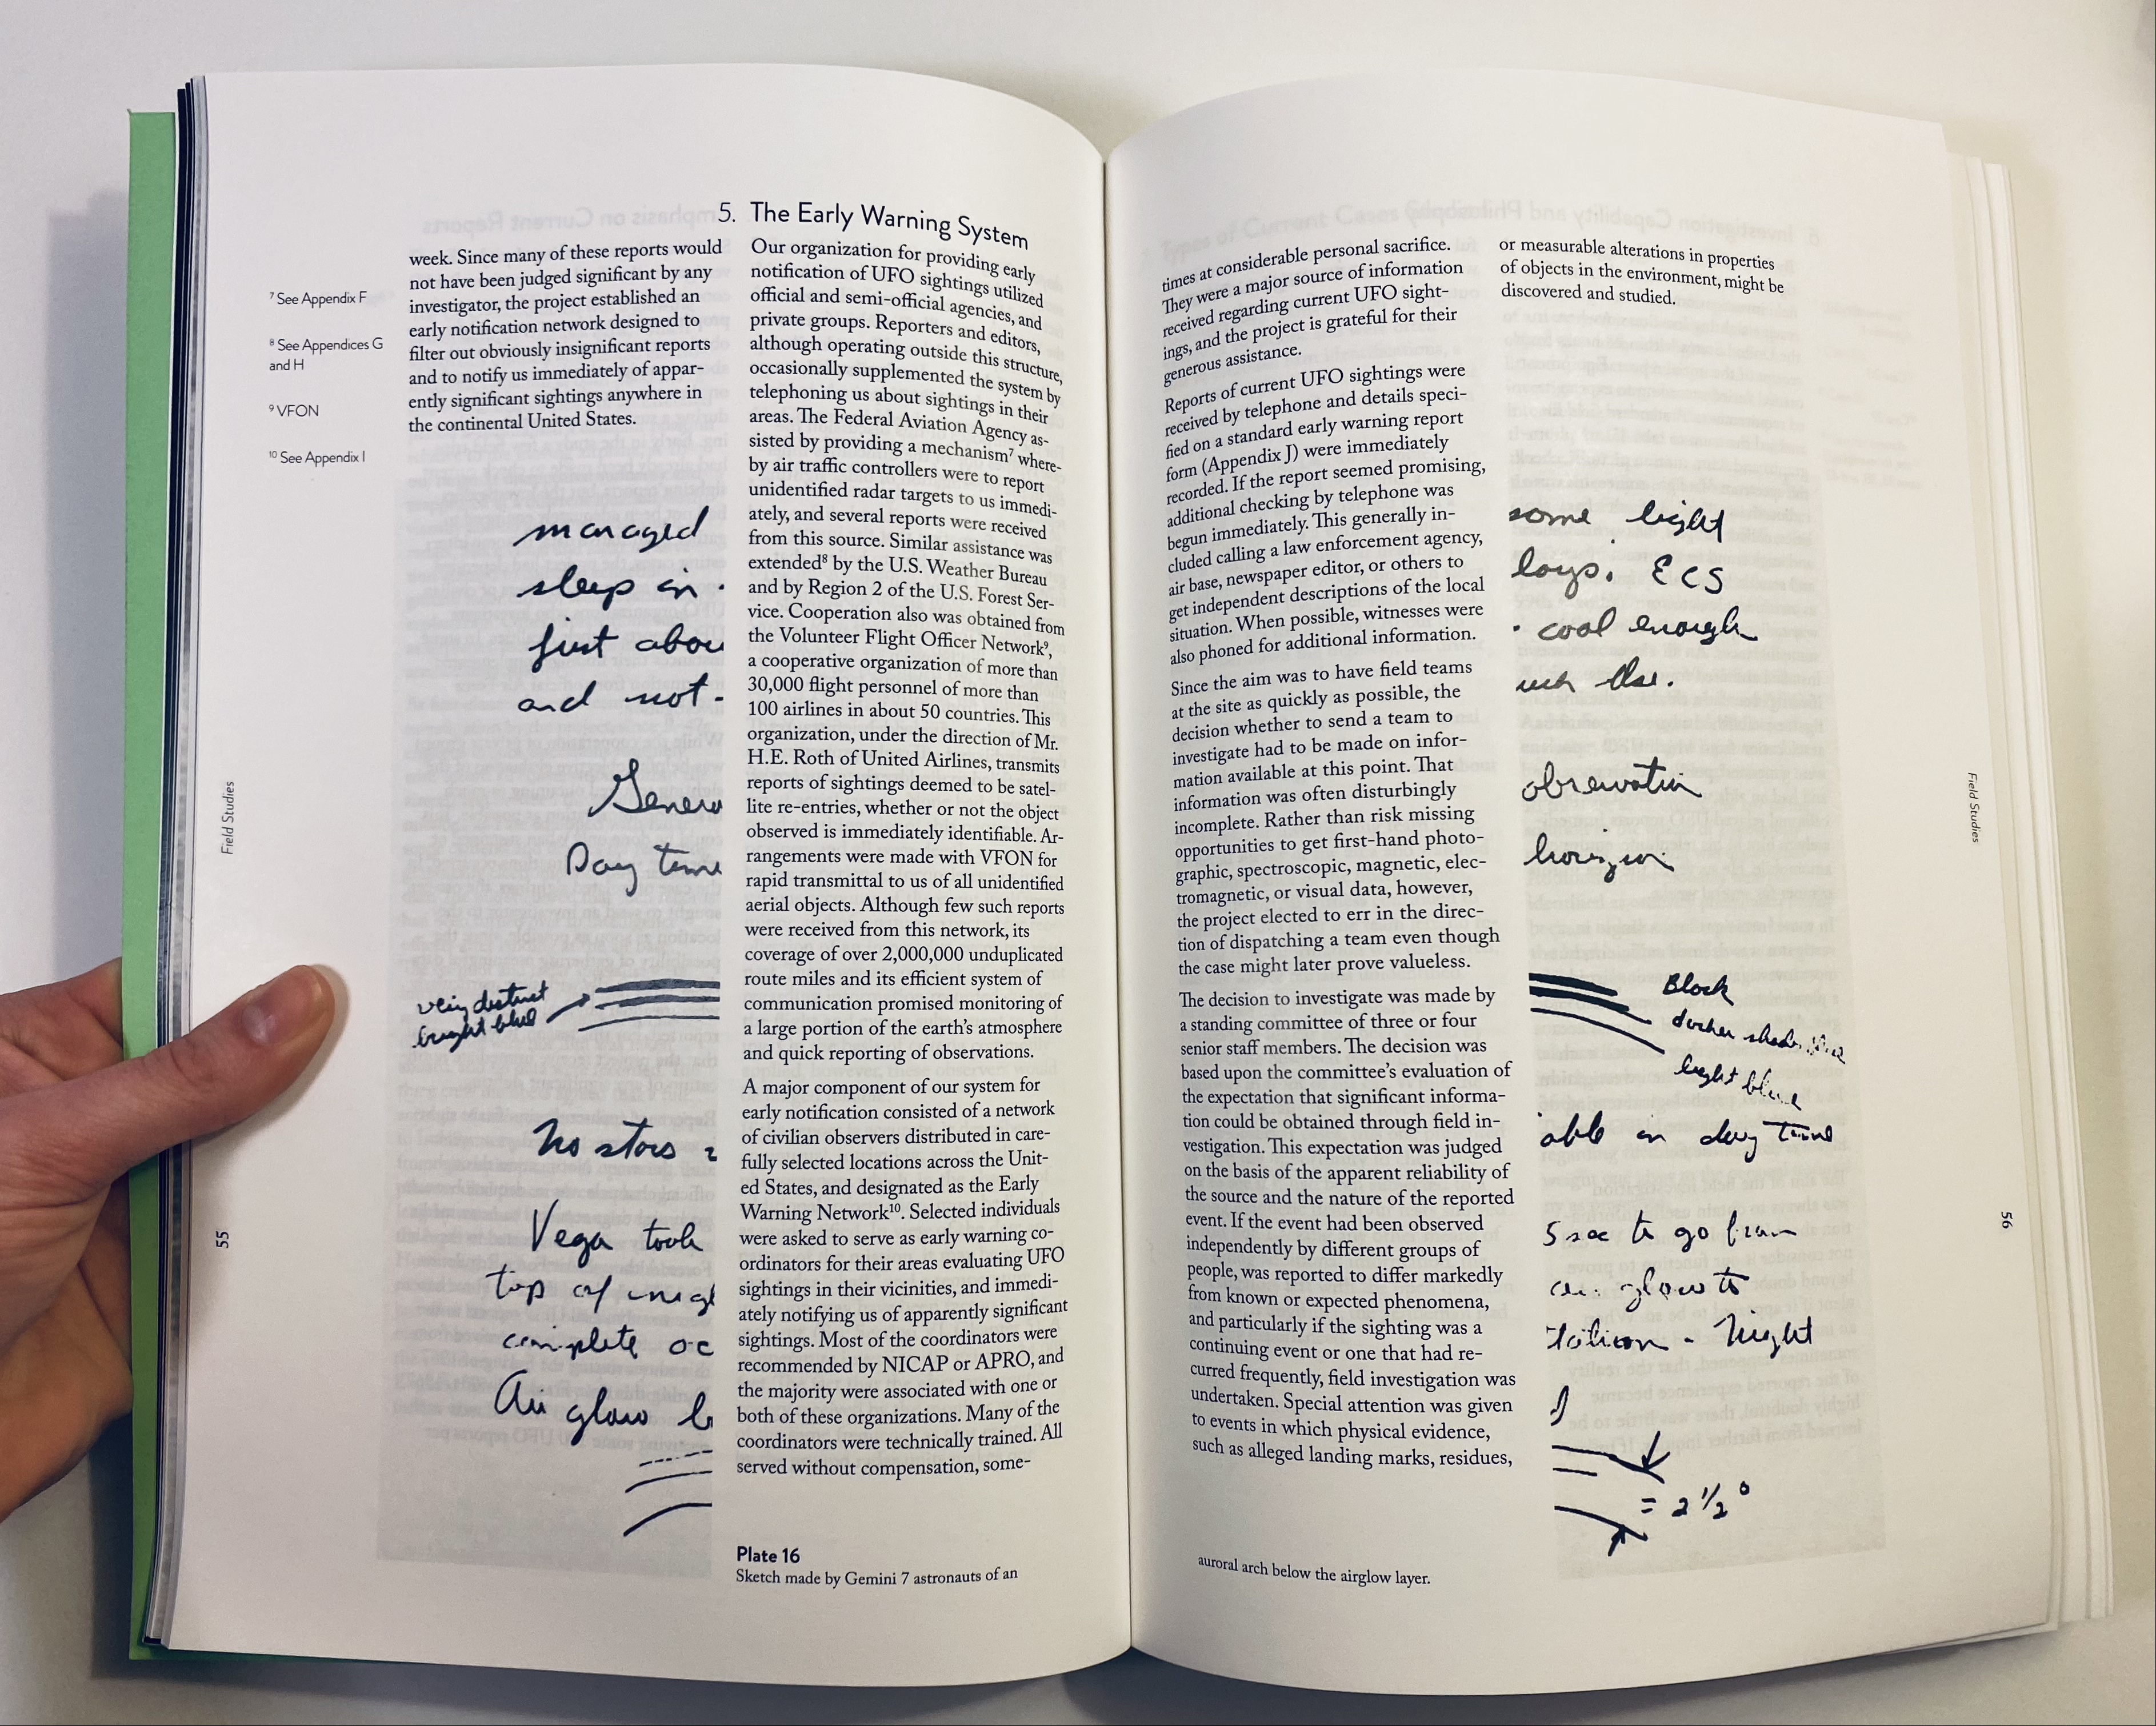 ⁷ See Appendix F
⁸ See Appendices G
and H
⁹ VFON
¹⁰ See Appendix I
Field Studies
55
week. Since many of these reports would
not have been judged significant by any
investigator, the project established an
early notification network designed to
filter out obviously insignificant reports
and to notify us immediately of appar-
ently significant sightings anywhere in
the continental United States.
managed
sleep in
first abou
and not
Genera
Day time
very distinct
bright blue
No stars
Vega took
top of
complete oc
Air glow b
5. The Early Warning System
Our organization for providing early
notification of UFO sightings utilized
official and semi-official agencies, and
private groups. Reporters and editors,
although operating outside this structure,
occasionally supplemented the system by
telephoning us about sightings in their
areas. The Federal Aviation Agency as-
sisted by providing a mechanism⁷ where-
by air traffic controllers were to report
unidentified radar targets to us immedi-
ately, and several reports were received
from this source. Similar assistance was
extended⁸ by the U.S. Weather Bureau
and by Region 2 of the U.S. Forest Ser-
vice. Cooperation also was obtained from
the Volunteer Flight Officer Network⁹,
a cooperative organization of more than
30,000 flight personnel of more than
100 airlines in about 50 countries. This
organization, under the direction of Mr.
H.E. Roth of United Airlines, transmits
reports of sightings deemed to be satel-
lite re-entries, whether or not the object
observed is immediately identifiable. Ar-
rangements were made with VFON for
rapid transmittal to us of all unidentified
aerial objects. Although few such reports
were received from this network, its
coverage of over 2,000,000 unduplicated
route miles and its efficient system of
communication promised monitoring of
a large portion of the earth's atmosphere
and quick reporting of observations.
A major component of our system for
early notification consisted of a network
of civilian observers distributed in care-
fully selected locations across the Unit-
ed States, and designated as the Early
Warning Network¹⁰. Selected individuals
were asked to serve as early warning co-
ordinators for their areas evaluating UFO
sightings in their vicinities, and immedi-
ately notifying us of apparently significant
sightings. Most of the coordinators were
recommended by NICAP or APRO, and
the majority were associated with one or
both of these organizations. Many of the
coordinators were technically trained. All
served without compensation, some-
Plate 16
Sketch made by Gemini 7 astronauts of an
times at considerable personal sacrifice.
They were a major source of information
received regarding current UFO sight-
ings, and the project is grateful for their
generous assistance.
Reports of current UFO sightings were
received by telephone and details speci-
fied on a standard early warning report
form (Appendix J) were immediately
recorded. If the report seemed promising,
additional checking by telephone was
begun immediately. This generally in-
cluded calling a law enforcement agency,
air base, newspaper editor, or others to
get independent descriptions of the local
situation. When possible, witnesses were
also phoned for additional information.
Since the aim was to have field teams
at the site as quickly as possible, the
decision whether to send a team to
investigate had to be made on infor-
mation available at this point. That
information was often disturbingly
incomplete. Rather than risk missing
opportunities to get first-hand photo-
graphic, spectroscopic, magnetic, elec-
tromagnetic, or visual data, however,
the project elected to err in the direc-
tion of dispatching a team even though
the case might later prove valueless.
The decision to investigate was made by
a standing committee of three or four
senior staff members. The decision was
based upon the committee's evaluation of
the expectation that significant informa-
tion could be obtained through field in-
vestigation. This expectation was judged
on the basis of the apparent reliability of
the source and the nature of the reported
event. If the event had been observed
independently by different groups of
people, was reported to differ markedly
from known or expected phenomena,
and particularly if the sighting was a
continuing event or one that had re-
curred frequently, field investigation was
undertaken. Special attention was given
to events in which physical evidence,
such as alleged landing marks, residues,
auroral arch below the airglow layer.
or measurable alterations in properties
of objects in the environment, might be
discovered and studied.
some light
ECS
cool enough
observation
horizon
Black
darker
light blue
able in day time
5 sec to go from
glow to
Night
= 2 1/2°
Field Studies
56